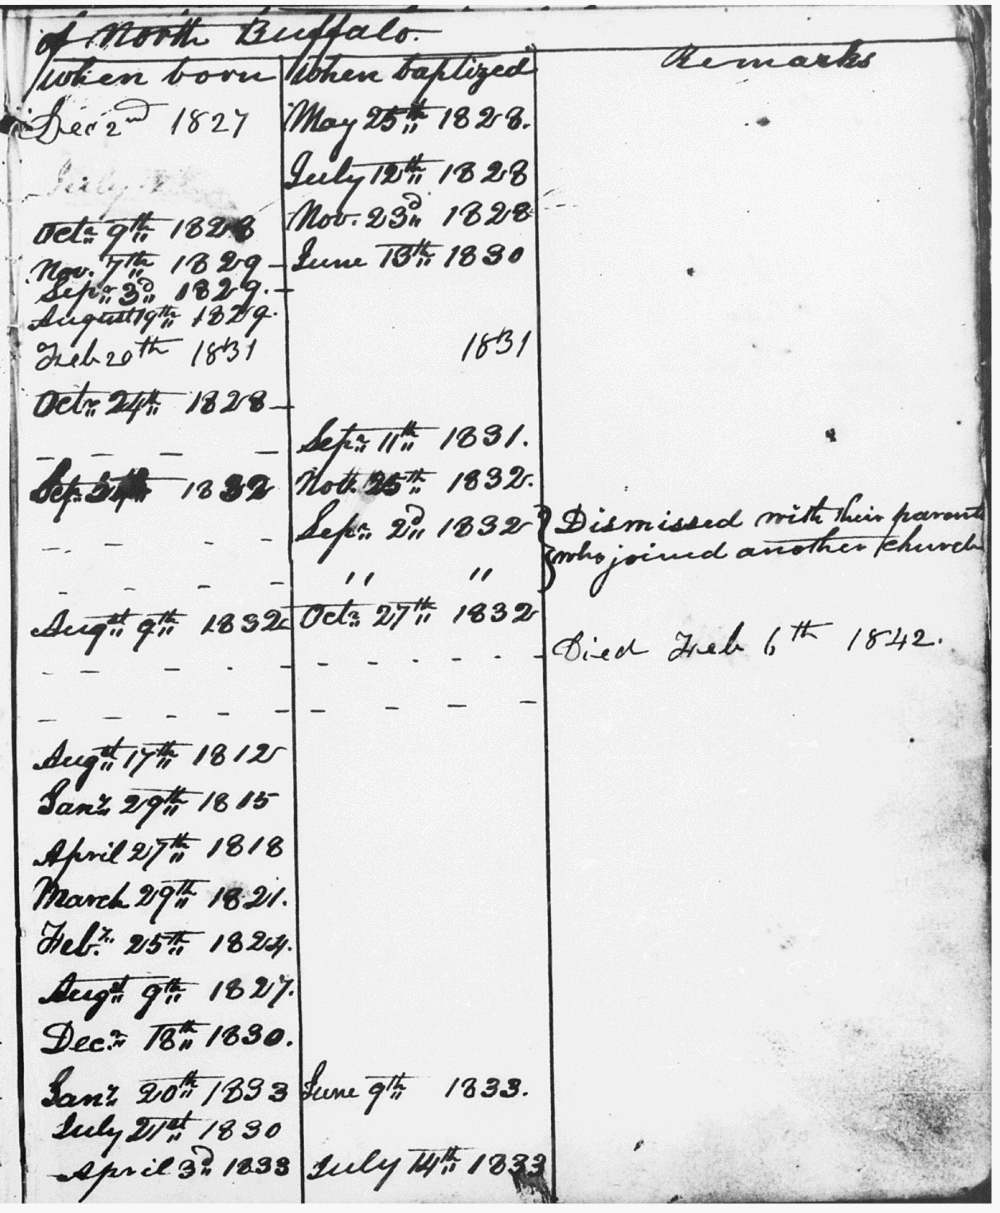 of North Buffalo.
when born when baptized Remarks
Dec 2nd 1827 May 25th 1828.
July July 12th 1828
Octr 9th 1828 Nov. 23d 1828
Nov. 7th 1829 June 13th 1830
Sepr 3d 1829.
August 19th 1829.
Feb 20th 1831 1831
Octr 24th 1828
Sepr 11th 1831.
1832 Nov. 25th 1832.
Sepr 2d 1832 Dismissed with their parents
who joined another church
" "
Augst 9th 1832 Octr 27th 1832
Died Feb 6th 1842.
Augst 17th 1812
Janr 29th 1815
April 27th 1818
March 29th 1821.
Febr 25th 1824.
Augst 9th 1827.
Decr 18th 1830.
Janr 20th 1833 June 9th 1833.
July 21st 1830
April 3d 1833 July 14th 1833